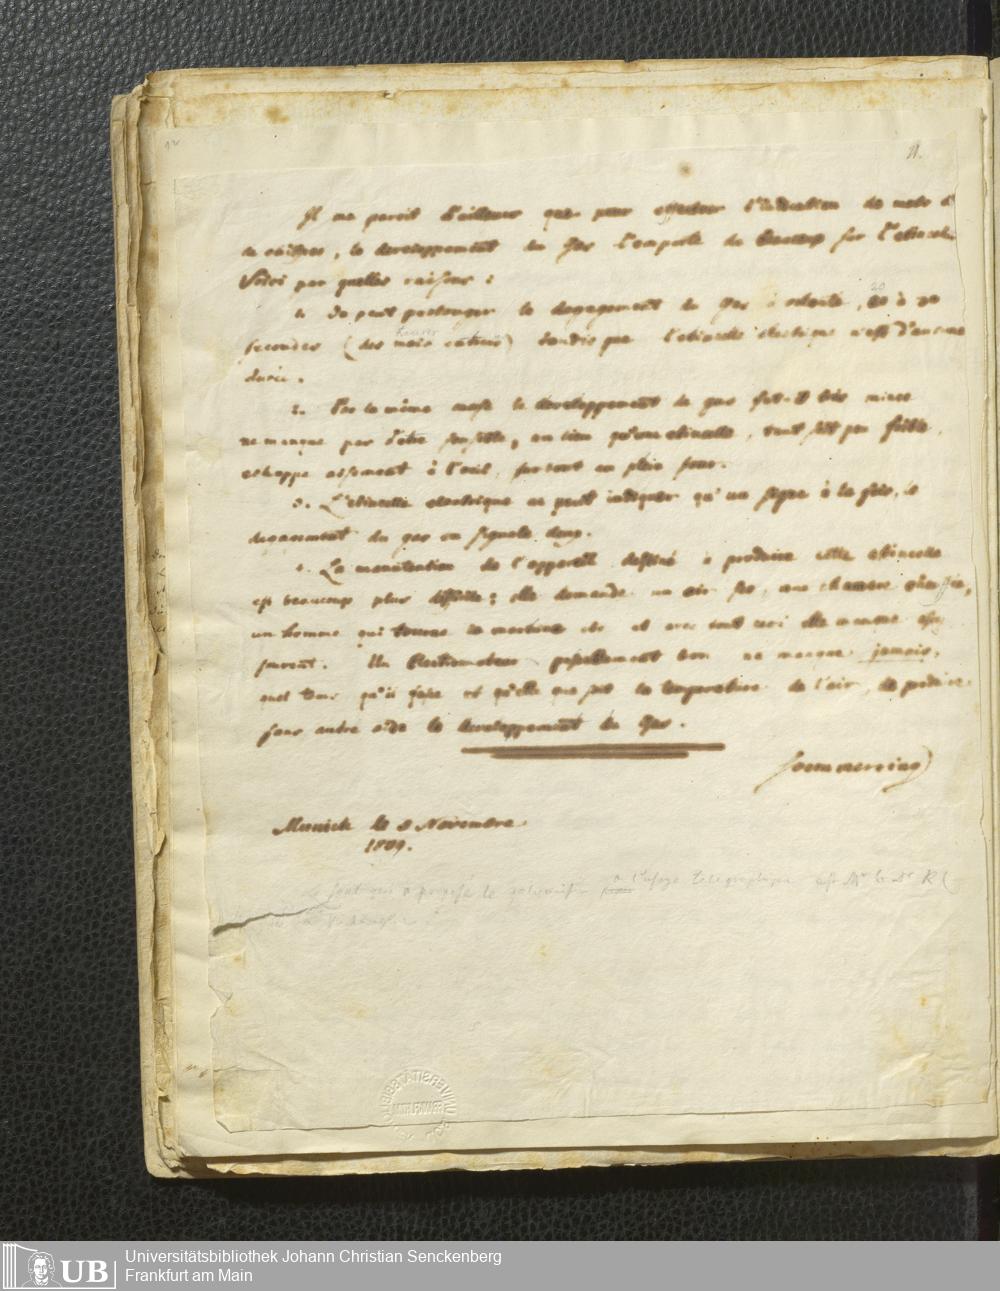 11.
Il me paroit d'ailleurs que pour effectuer l'indication de mots &
de chifres, le developpement du Gas l'emporte de beaucoup sur l'etincelle
Voici par quelles raisons:
1. On peut prolonger le degagement du Gas à volonté, 20 à 30
secondes (des heures entieres) tandis que l'etincelle electrique n'est d'aucune
durée.
2. Par la même le developpement de gas fut-il très mince
ne manque pas d'etre sensible, au lieu qu'une etincelle, tant soit peu foible,
echappe aisement à l'oeil, surtout en plein jour.
3. L'etincelle electrique ne peut indiquer qu'un signe à la fois, le
degagement du gas en signale deux.
4. La manutention de l'appareil destiné à produire cette etincelle
est beaucoup plus difficile; elle demande un air sec, une chambre
un homme qui tourne la machine et avec tout ceci elle manque assez
souvent. Un passablement bon ne manque jamais,
quel tems qu'il fasse et quelle que soit la temperature de l'air, de produire
sans autre aide le developpement du Gas.
Soemmerring
Munich le 8 Novembre
1809.
a proposé le à l'usage Telegraphique est Mr le Dr